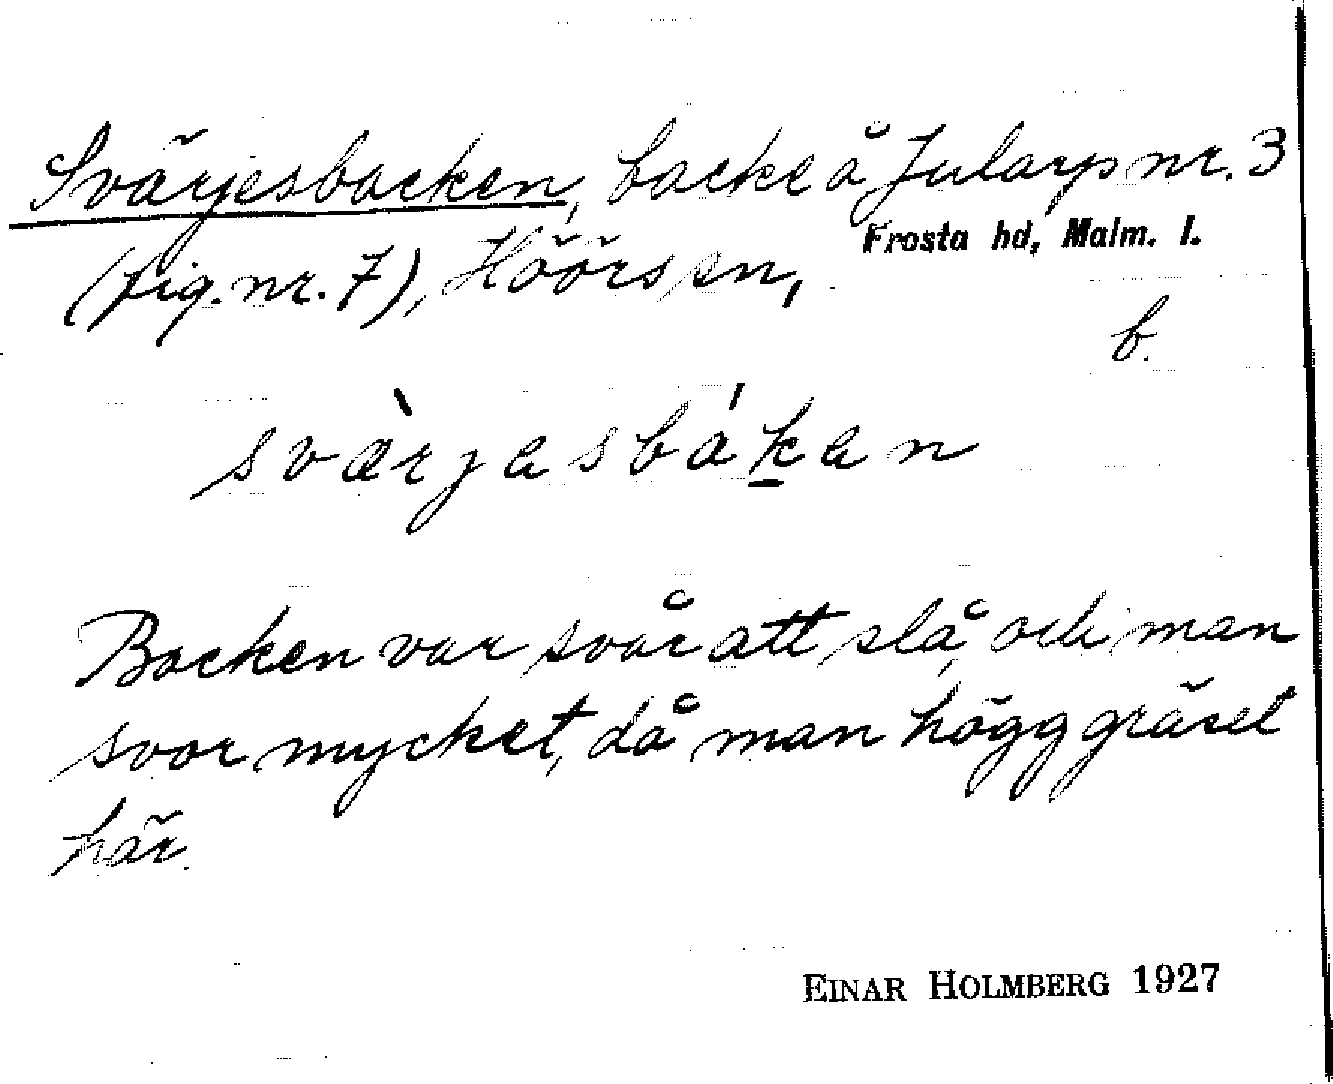 Svärjesbacken, backe å Jularp nr. 3
Frosta hd, Malm. l.
(fig. nr. 7), Höörs sn,
b.
svær̀jesbák̲en
Backen var svår att slå, och man
svor mycket, då man högg gräset
här.
EINAR HOLMBERG 1927